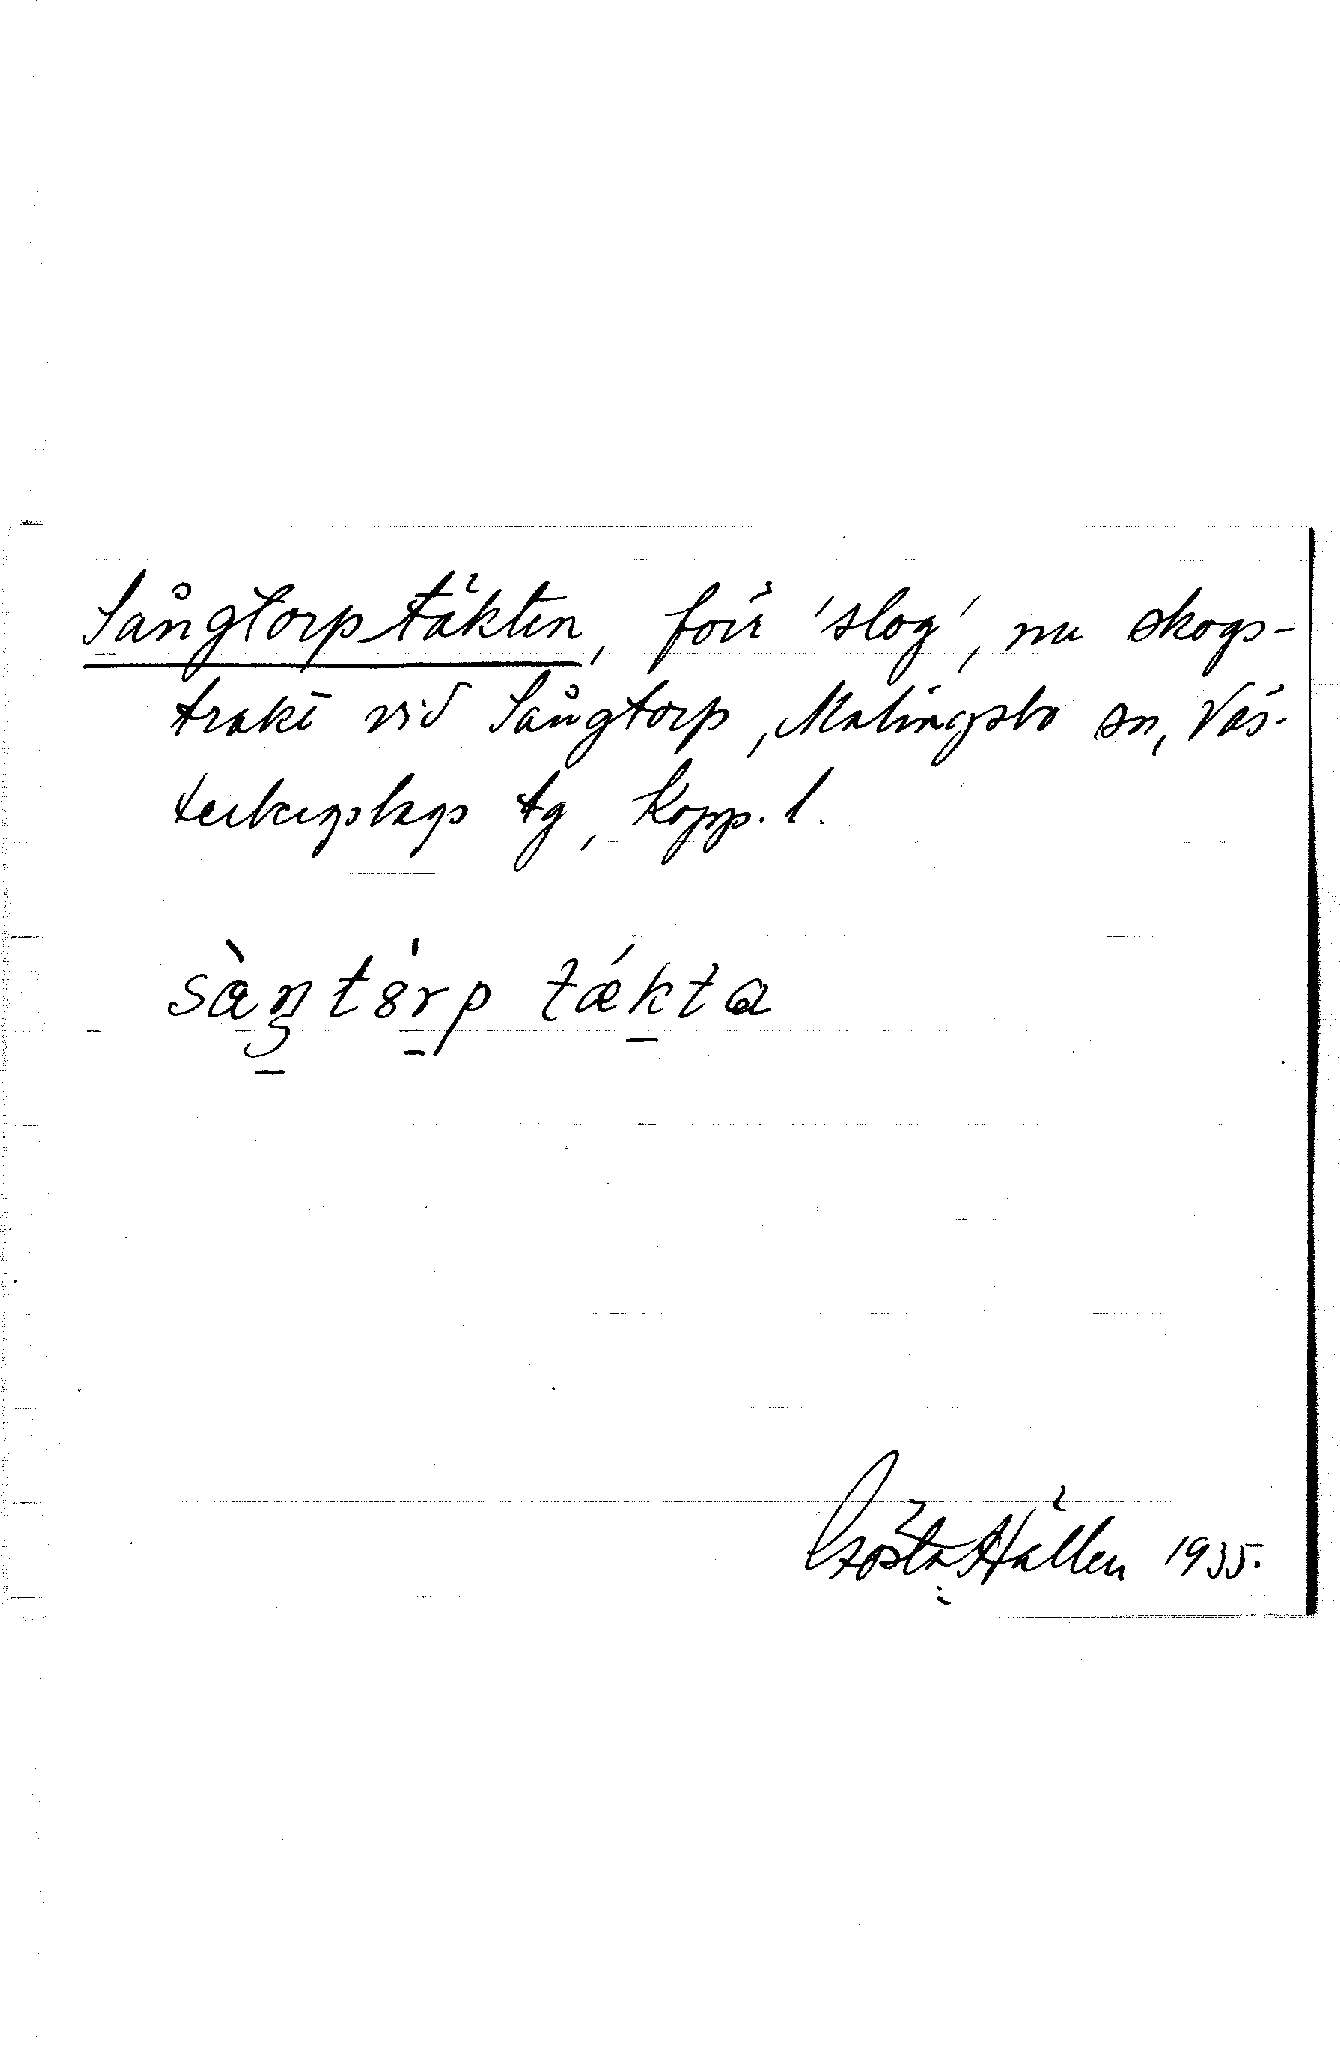 Sångtorptäkten, förr 'slog', nu skogs-
trakt vid Sångtorp, Malingsbo sn, Väs-
terbergslags tg, Kopp. l.
sàŋtórp tǽkta
Gösta Hällen 1935.